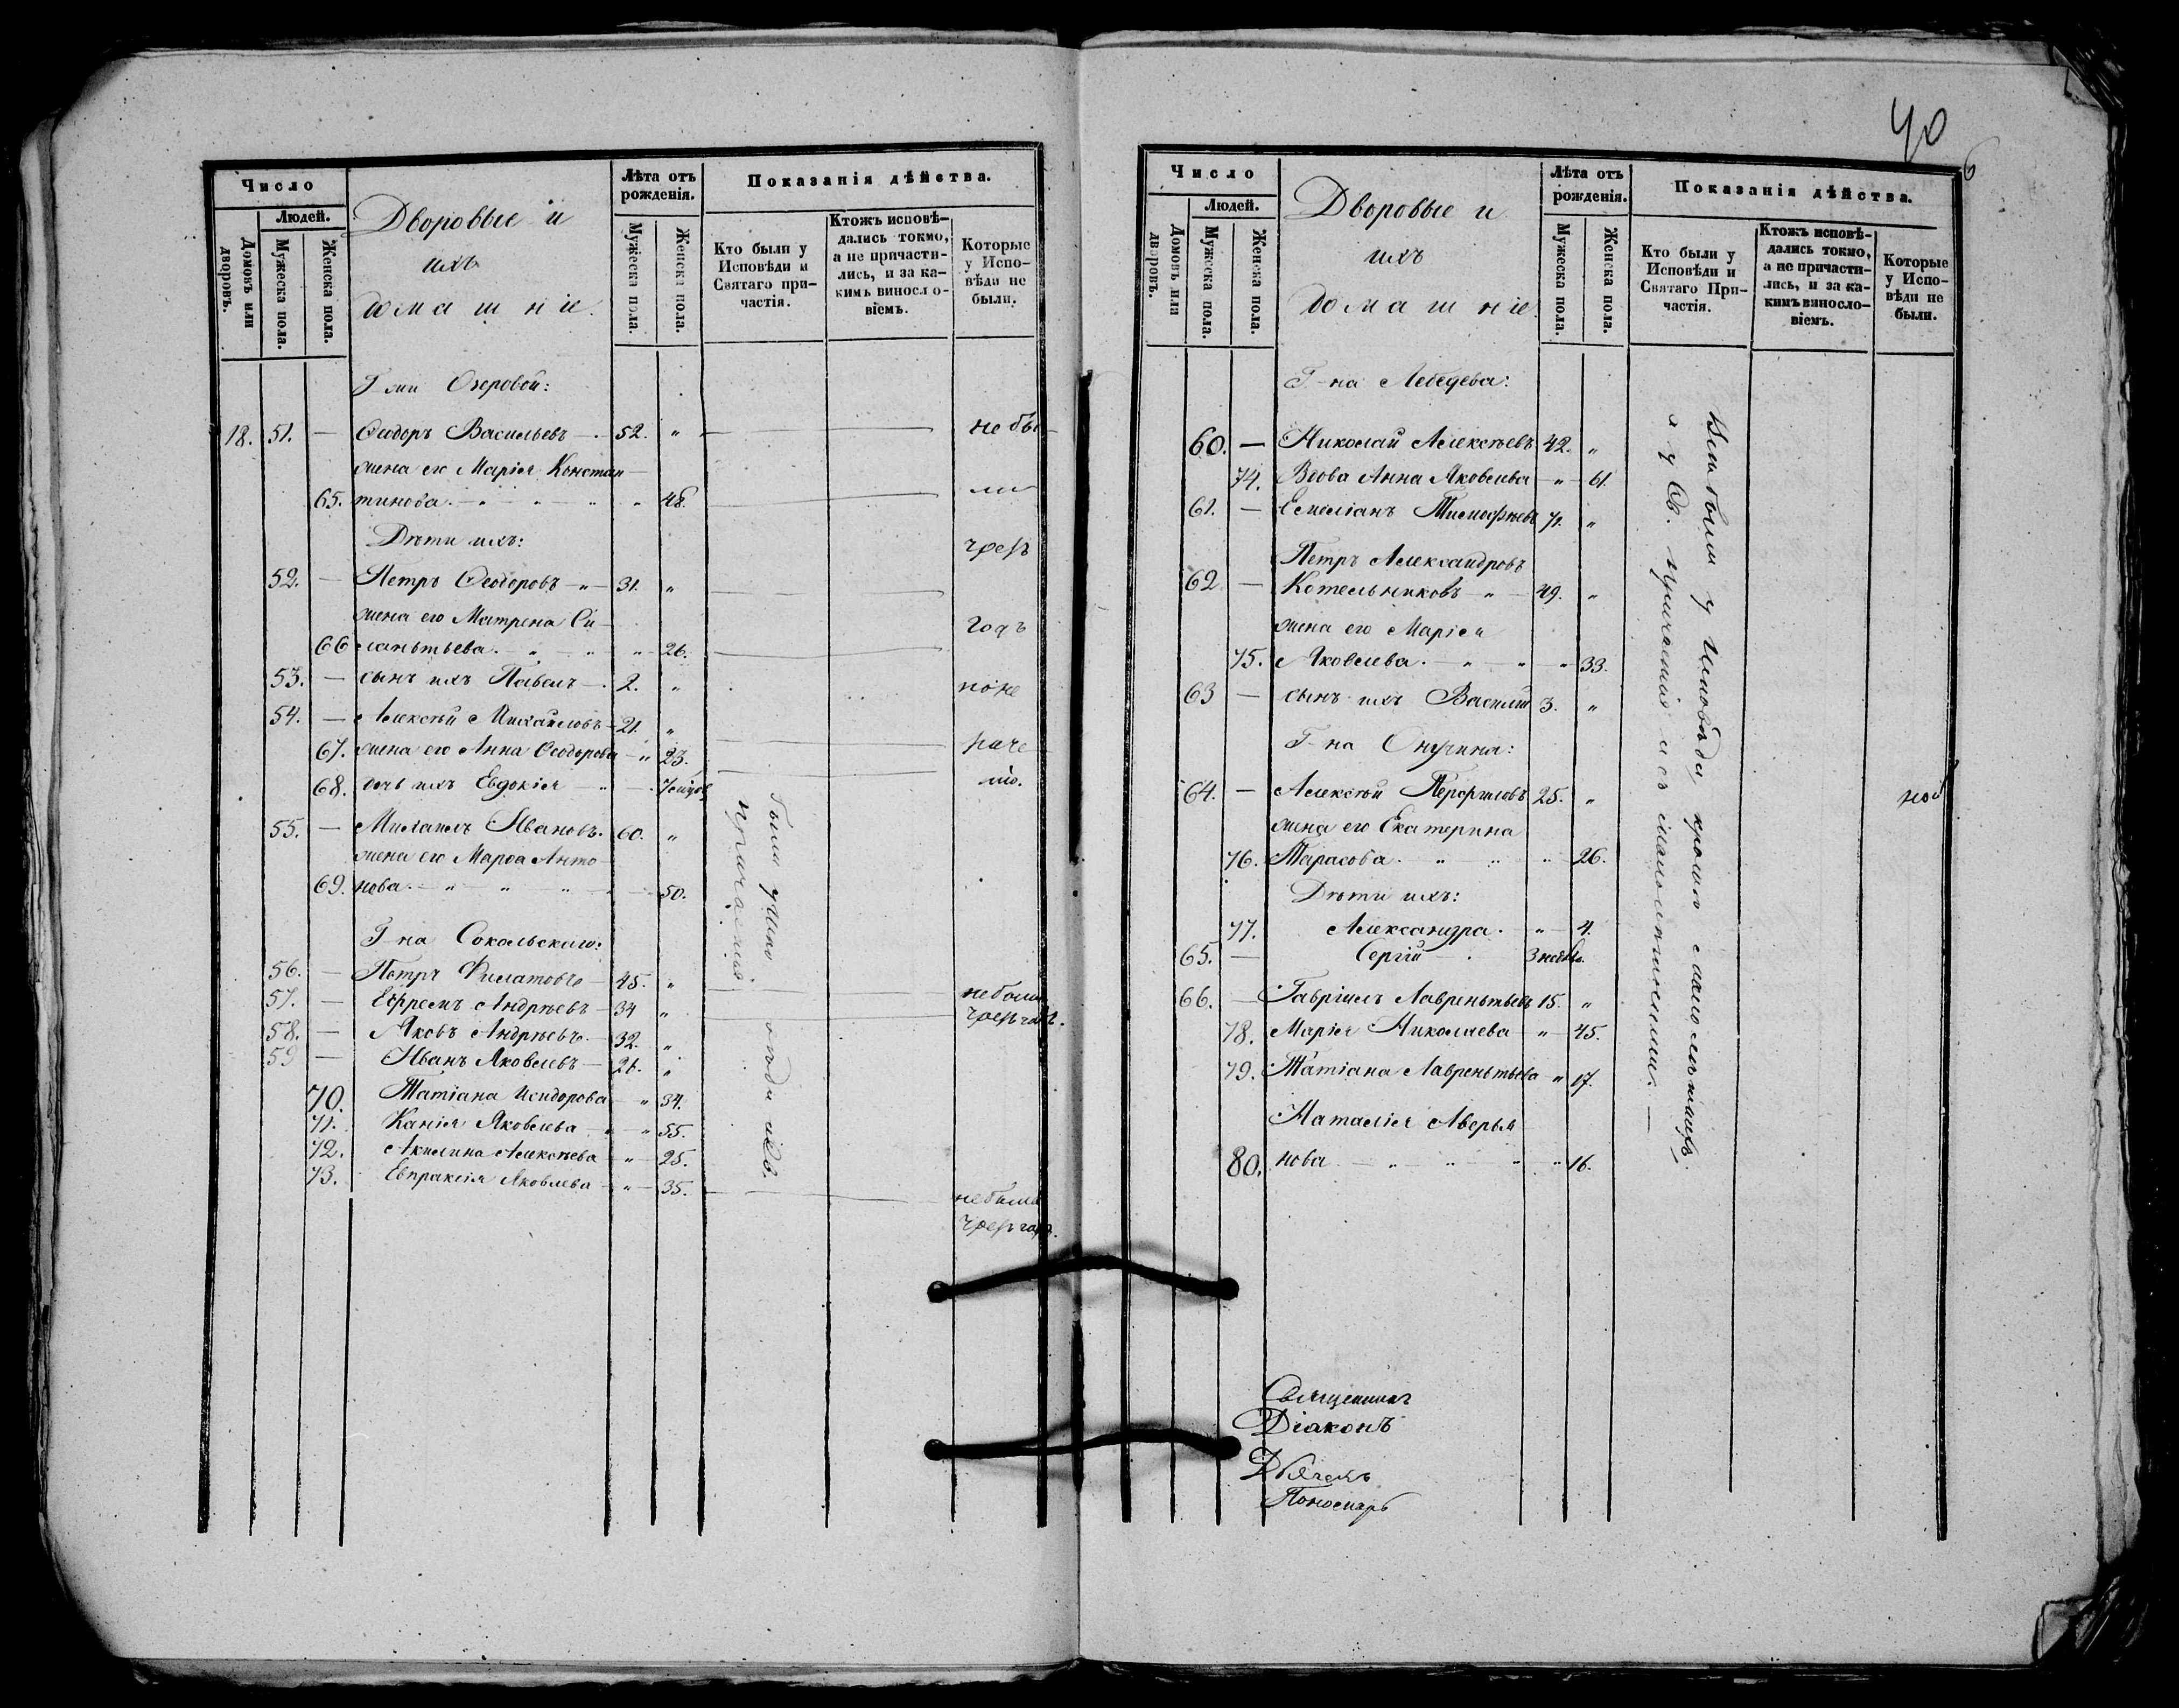 Число
Людей.
Домовъ или дворовъ.
Мужеска пола.
Женска пола.
Дворовые и
ихъ
домашніе.
Лѣта отъ рожденія.
Мужеска пола.
Женска пола.
Показанія дѣйства.
Кто были у Исповѣди и Святаго причастія.
Ктожъ исповѣдались токмо, а не причастились, и за какимъ винословіемъ.
Которые у Исповѣди не были.
Г-жи Озеровой:
18. 51. — Ѳеодоръ Васильевъ — 52. „ не бы-
жена его Марія Констан-
65. тинова. — „ — „ „ 48. ли
Дѣти ихъ: чрезъ
52. — Петръ Ѳеодоровъ — „ — 31. „
жена его Матрена Си- годъ
66 лантьева. — „ — „ „ 26.
53. — сынъ ихъ Павелъ — 2. „ по не
54. — Алексѣй Михайловъ — 21. „
67. жена его Анна Ѳеодорова — „ 23. раче
68. дочь ихъ Евдокія — „ — 7 мѣсяц. нію.
55. — Михаилъ Ивановъ. 60. „
жена его Марѳа Анто-
69. нова. — „ — „ — „ 50.
Были у Испо вѣди и Св.
причастія.
Г-на Сокольскаго:
56. — Петръ Филатовъ — 45. „
57. — Ефремъ Андреевъ — 34 „ не были
58. — Яковъ Андреевъ — 32. „ чрезъ годъ.
59 — Иванъ Яковлевъ — 21. „
70. Татіана Исидорова „ 34.
71. Яковлева — „ 55.
72. Акилина Алексѣева — „ 25.
73. Евпраксія Яковлева — „ 35. не была
чрезъ годъ.
40
6
Число
Людей.
Домовъ или дворовъ.
Мужеска пола.
Женска пола.
Дворовые и
ихъ
домашніе
Лѣта отъ рожденія.
Мужеска пола.
Женска пола.
Показанія дѣйства.
Кто были у Исповѣди и Святаго Причастія.
Ктожъ исповѣдались токмо, а не причастились, и за какимъ винословіемъ.
Которые у Исповѣди не были.
Г-на Лебедева:
60. — Николай Алексѣевъ 42. „
74. Вдова Анна Яковлева — „ 61.
61. — Емеліанъ Тимофѣевъ 71. „
Петръ Александровъ
62 — Котельниковъ — „ — 49. „
жена его Марія
75. Яковлева. — „ — „ „ 33.
63 — сынъ ихъ Василій 3. „
Г-на Онучина:
64. — Алексѣй Перфиловъ 25. „
жена его Екатерина
76. Тарасова — „ „ „ 26.
Дѣти ихъ:
77. Александра. „ 4.
65. — Сергій — 3 недѣль.
66. — Гавріилъ Лаврентьевъ 15. „
78. Марія Николаева — „ 45.
79. Татіана Лаврентьева „ 17.
Наталія Аверья
80. нова — „ — „ — „ „ 16.
Всѣ были у Исповѣди, кромѣ малолѣтнихъ,
а у Св. Причастія и съ малолѣтними. —
Священникъ
Діаконъ
Дьячекъ
Пономарь